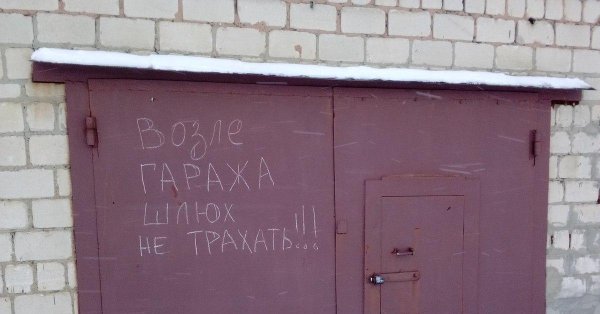 Возле
ГАРАЖА
ШЛЮХ
НЕ ТРАХАТЬ!!!